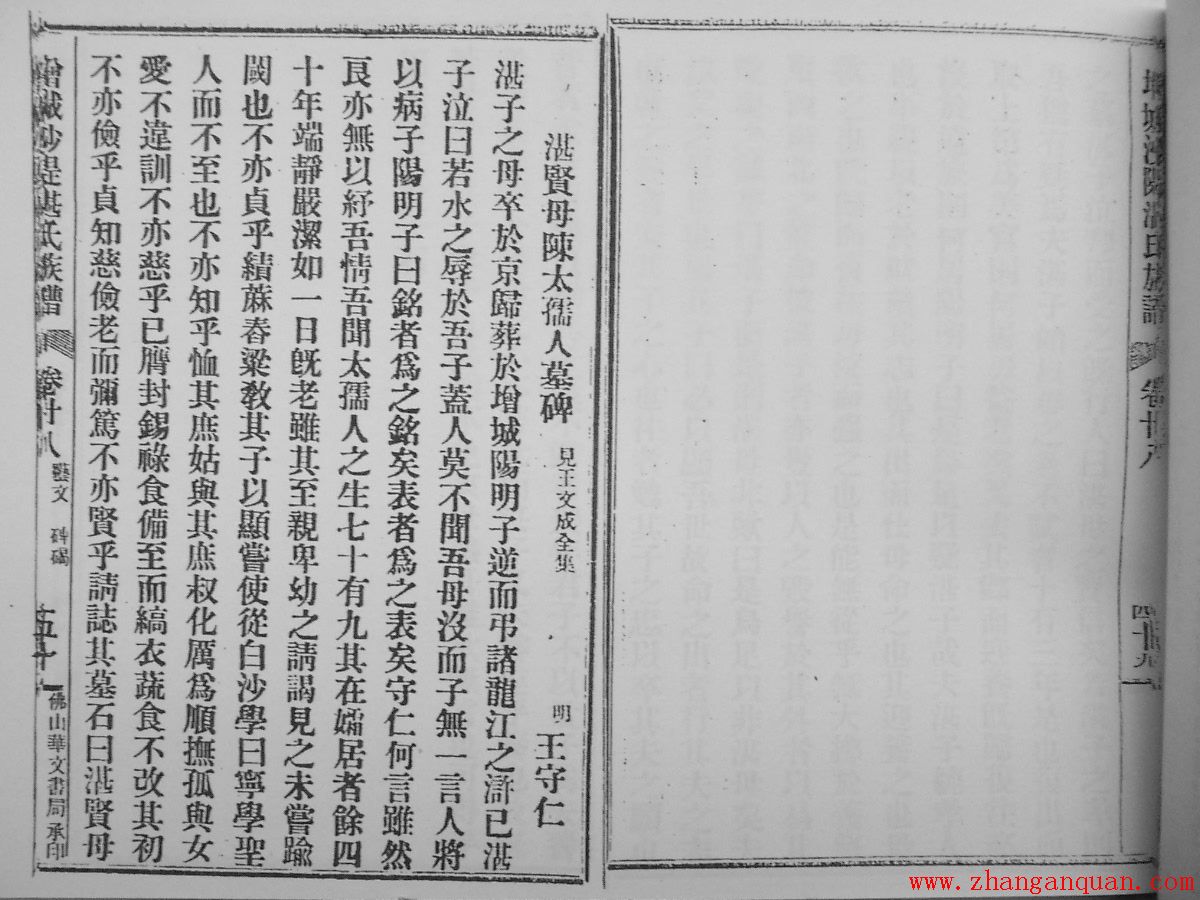 氏族譜 卷廿八 四十九
湛賢母陳太孺人墓碑 見王文成全集 明 王守仁
湛子之母卒於京歸葬於增城陽明子逆而弔諸龍江之滸已湛
子泣曰若水之辱於吾子蓋人莫不聞吾母沒而子無一言人將
以病子陽明子曰銘者爲之銘矣表者爲之表矣守仁何言雖然
良亦無以紓吾情吾聞太孺人之生七十有九其在孀居者餘四
十年端靜嚴潔如一日旣老雖其至親卑幼之請謁見之未嘗踰
閾也不亦貞乎績蔴舂粱敎其子以顯嘗使從白沙學曰寧學聖
人而不至也不亦知乎恤其庶姑與其庶叔化厲爲順撫孤與女
愛不違訓不亦慈乎已膺封錫祿食備至而縞衣蔬食不改其初
不亦儉乎貞知慈儉老而彌篤不亦賢乎請誌其墓石曰湛賢母
增城沙堤湛氏族譜 卷廿八 藝文 碑碣 五十 佛山華文書局承印
www.zhanganquan.com